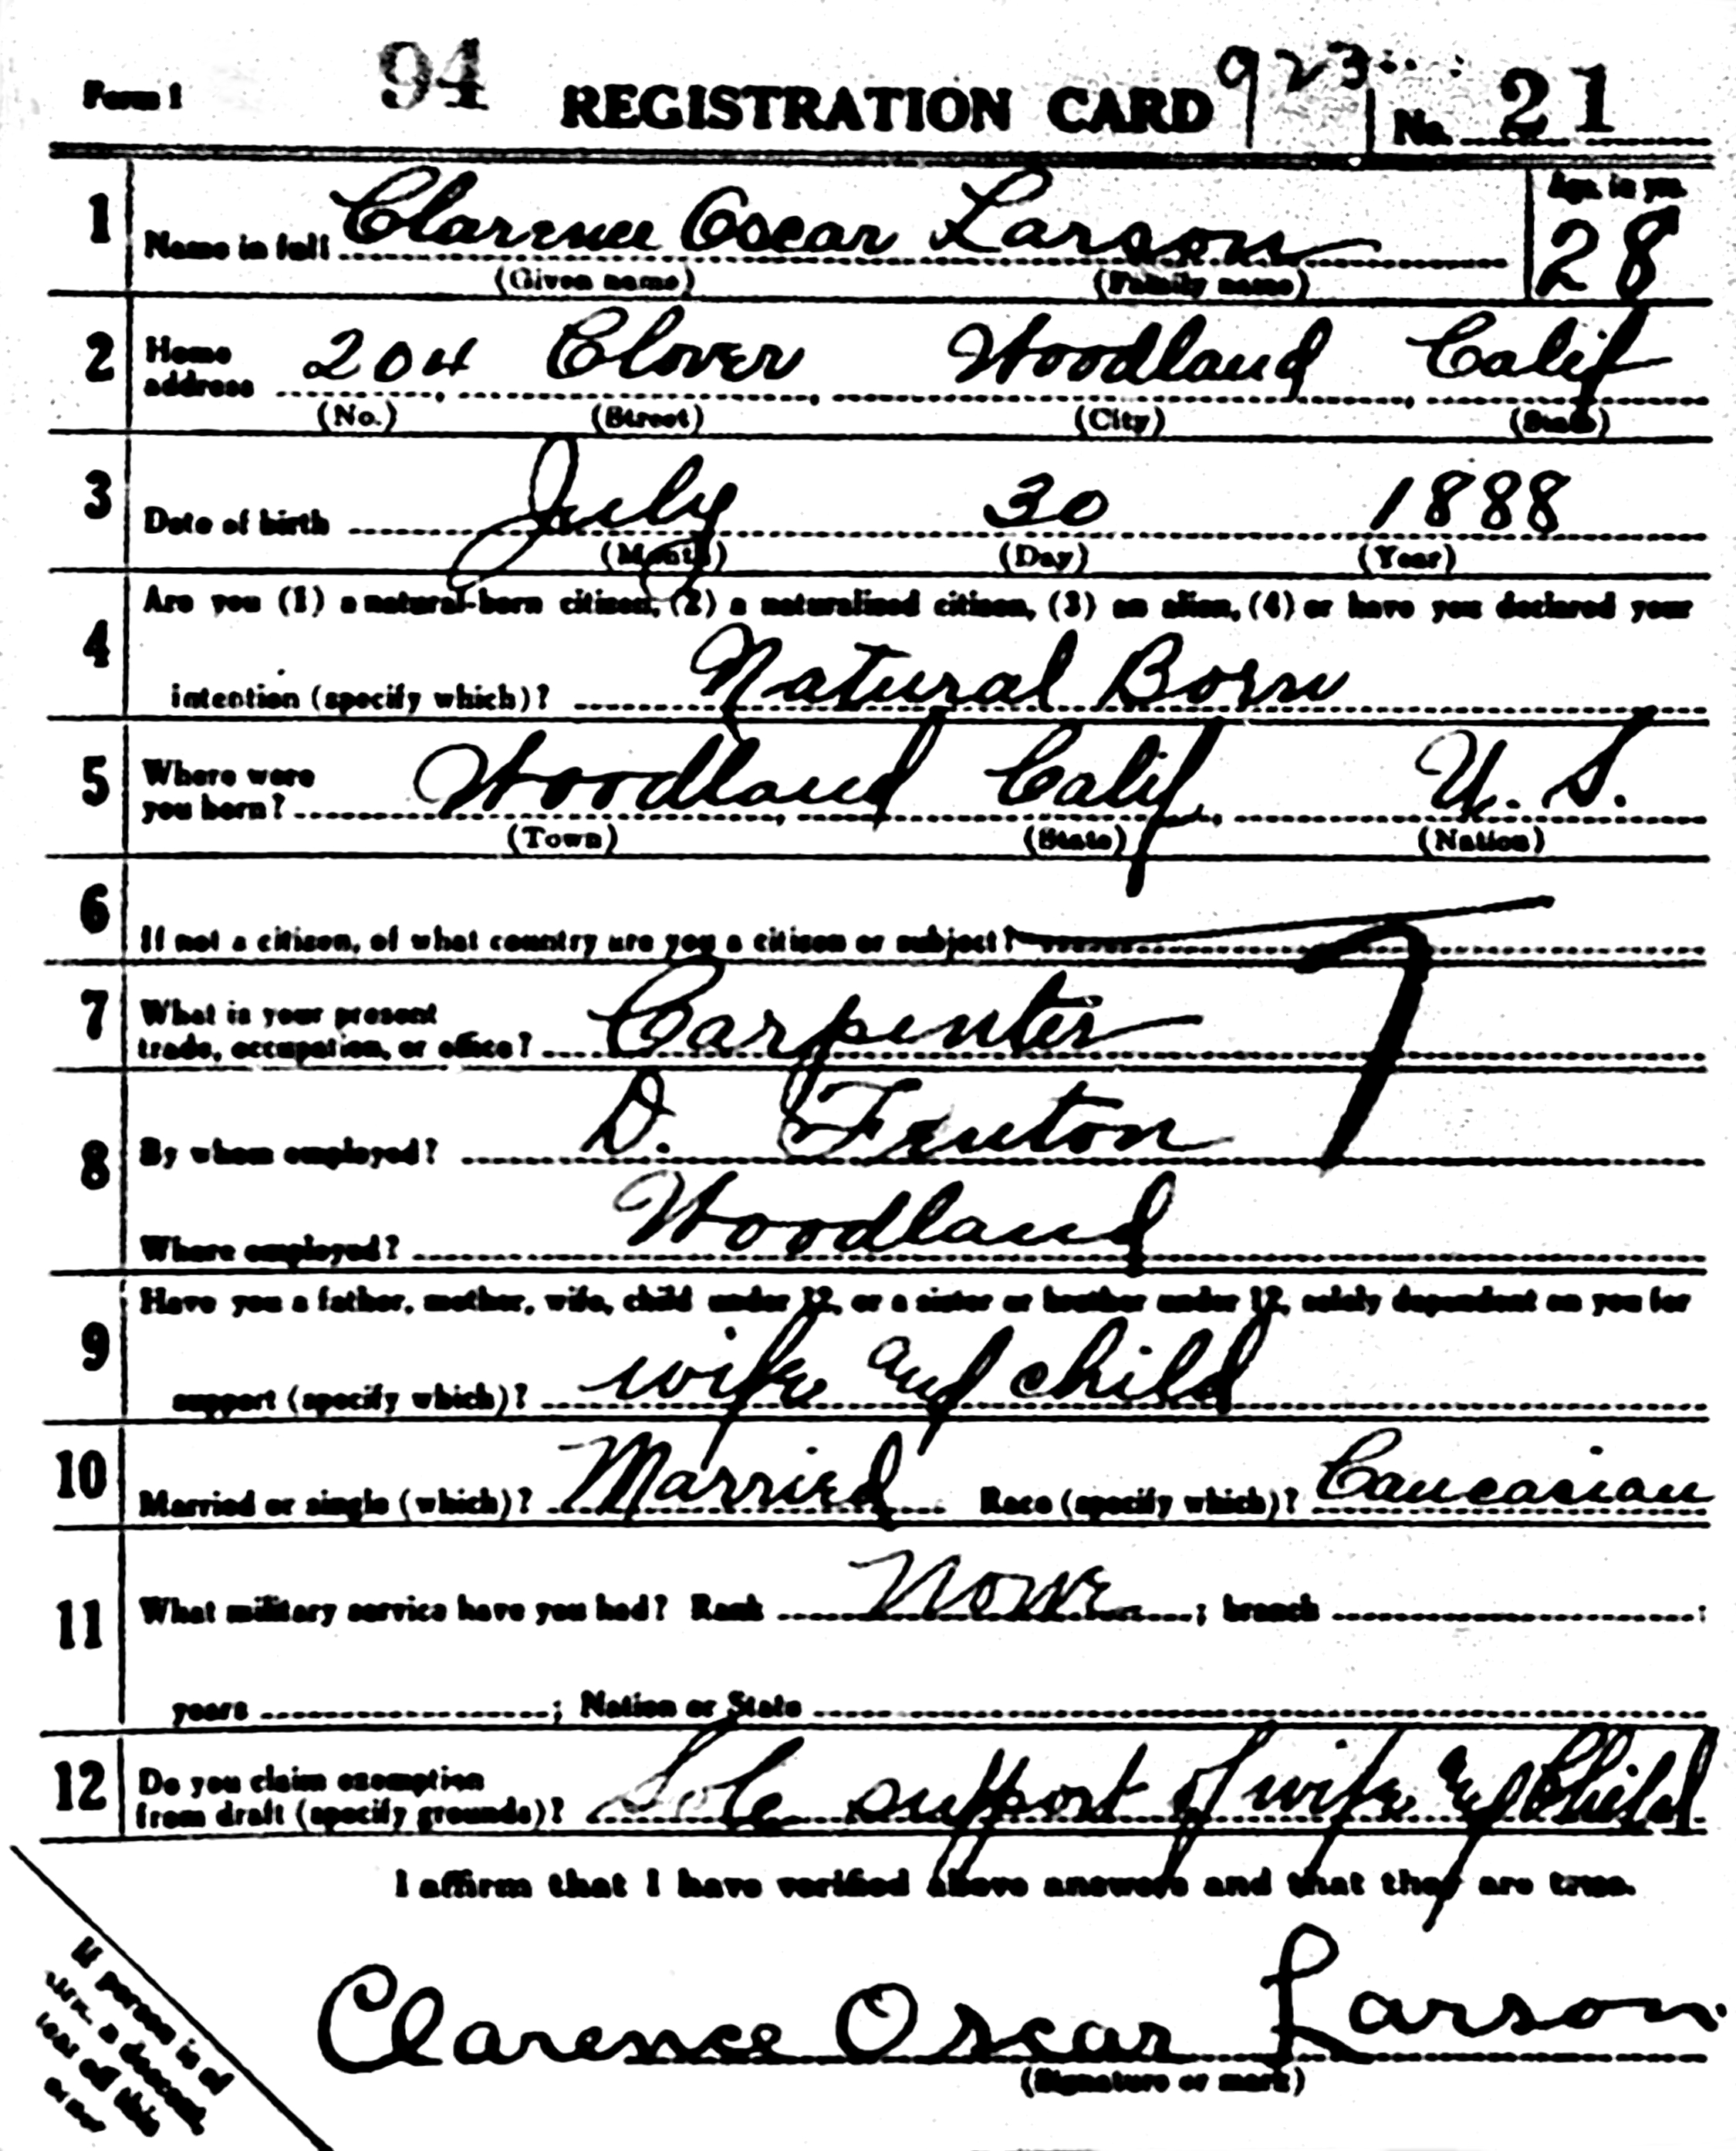 Form 1 94 REGISTRATION CARD 923 No. 21
1 Name in full Clarence Oscar Larson Age, in yrs. 28
(Given name) (Family name)
2 Home address 204 Clover Woodland Calif
(No.) (Street) (City) (State)
3 Date of birth July 30 1888
(Month) (Day) (Year)
4 Are you (1) a natural-born citizen, (2) a naturalized citizen, (3) an alien, (4) or have you declared your
intention (specify which)? Natural Born
5 Where were
you born? Woodland Calif, U. S.
(Town) (State) (Nation)
6 If not a citizen, of what country are you a citizen or subject?
7 What is your present
trade, occupation, or office? Carpenter 7
8 By whom employed? D. Fenton
Where employed? Woodland
9 Have you a father, mother, wife, child under 12, or a sister or brother under 12, solely dependent on you for
support (specify which)? wife and child
10 Married or single (which)? Married Race (specify which)? Caucasian
11 What military service have you had? Rank None ; branch ;
years ; Nation or State
12 Do you claim exemption
from draft (specify grounds)? Sole support of wife and Child
I affirm that I have verified above answers and that they are true.
Clarence Oscar Larson
(Signature or mark)
If person is of